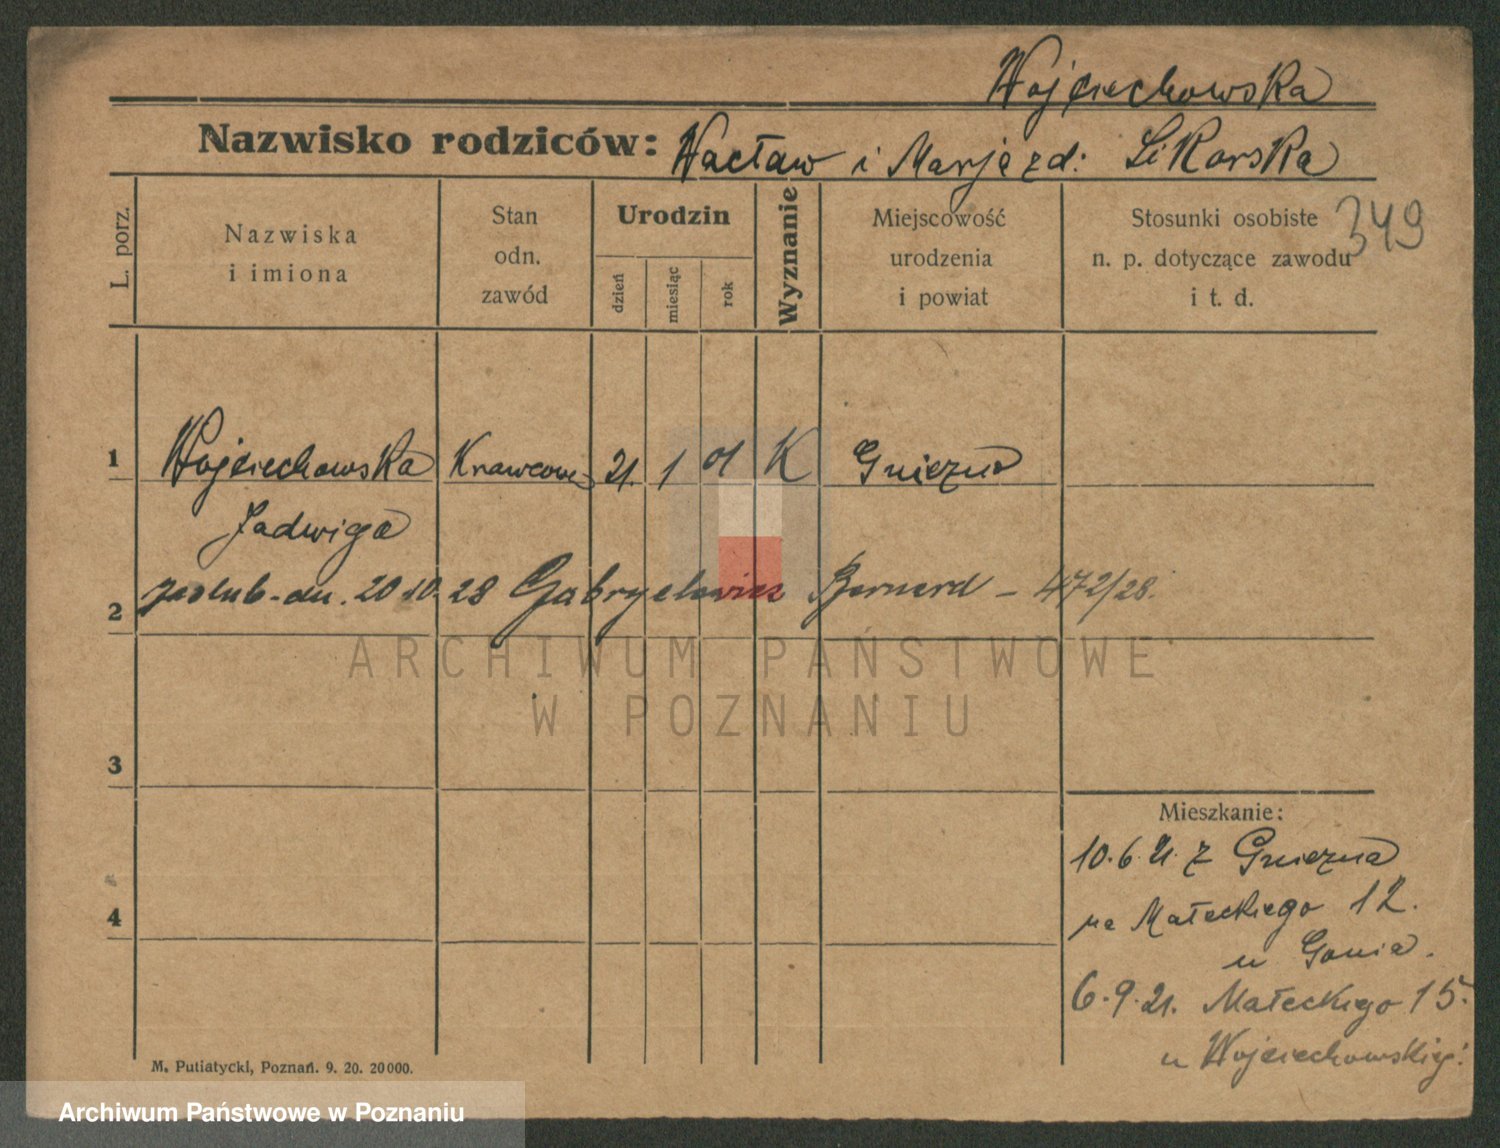 Wojciechowska
Nazwisko rodziców: Wacław i Marja zd: Sikorska
L. porz.
Nazwiska
i imiona
Stan
odn.
zawód
Urodzin
dzień
miesiąc
rok
Wyznanie
Miejscowość
urodzenia
i powiat
Stosunki osobiste
n. p. dotyczące zawodu
i t. d.
349
1 Wojciechowska Krawcowa 21. 1 01 K Gniezno
Jadwiga
2 zaślub. dn. 20 10. 28 Gabryelewicz Bernard – 472/28.
3
4
Mieszkanie:
10.6.21. z Gniezna
na Małeckiego 12.
u Gania.
6.9.21. Małeckiego 15.
u Wojciechowskiej.
M. Putiatycki, Poznań. 9. 20. 20000.
ARCHIWUM PAŃSTWOWE
W POZNANIU
Archiwum Państwowe w Poznaniu